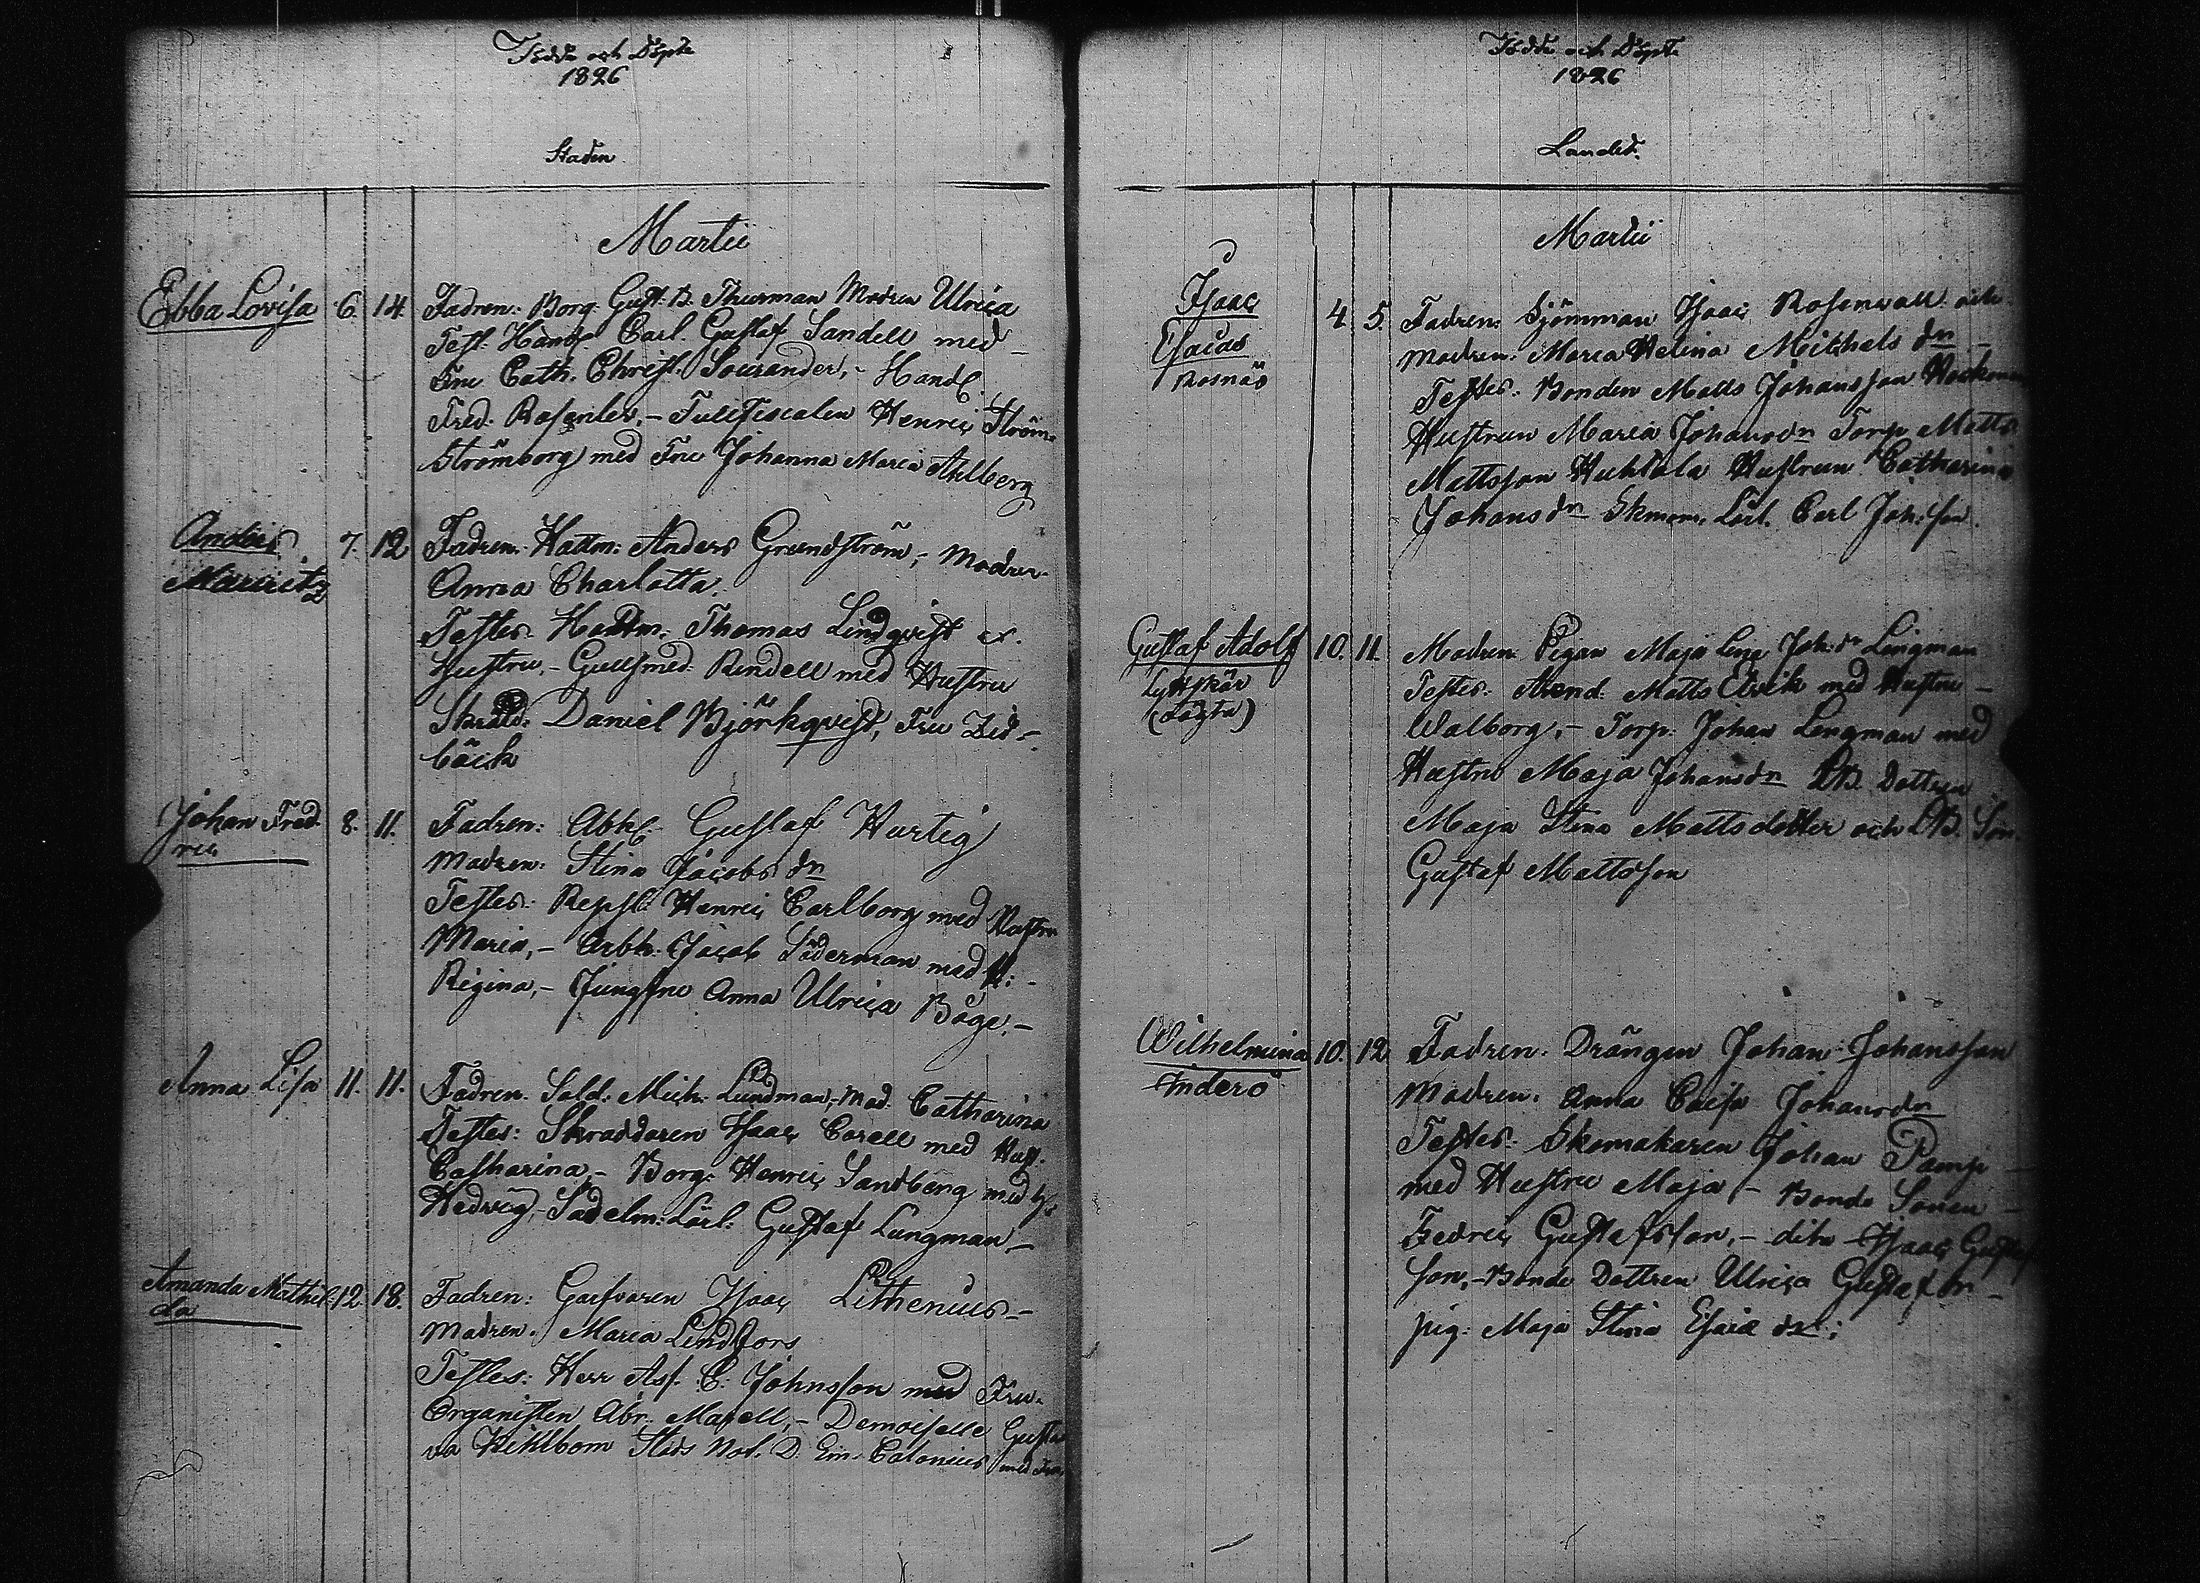 Födde och Döpte
1826
Staden
Martii
Ebba Lovisa 6. 14. Fadren: Borg. Gust. B. Thurman Modren Ulrica
Test. Handl. Carl Gustaf Sandell med
Fru Cath. Christ. Sourander, - Handl.
Fred. - Tullfiscalen Henric Ström-
Strömborg med Fru Johanna Maria Ahlberg
Anders 7. 12 Fadren: Hattm: Anders Grundström, Modren
Mauritz Anna Charlotta.
Testes. Hattm: Thomas Lindqvist
Hustru, - Gullsmed: Rindell med Hustru
Daniel Björkqvist, Fru Zid-
bäck
Johan Fred- 8. 11. Fadren: Gustaf Hurtig
ric Modren: Stina Jacobs dn
Testes: Repsl: Henric Carlborg med Hustru
Maria, - Arbk. Jacob Söderman med H:
Regina, - Jungfru Anna Ulrica Böge, -
Anna Lisa 11. 11. Fadren. Sold: Mich: Lundman, - Mod. Catharina
Testes: Skraddaren Isaac Corell med Hust.
Catharina, - Borg: Henric Sandberg med H:
Hedvig, - Sadelm: Lärl: Gustaf Lungman, -
Amanda Mathil- 12. 18. Fadren: Garfvaren Isaac Lithenius -
da Modren. Maria Lindfors
Testes: Herr Ass. C. Johnsson med Fru.
Organisten Abr. Maxell, - Demoiselle Gusta
va Kihlbom Stads Not. D. Em. Calonius med Fru
Födde och Döpte
1826
Landet.
Martii
Isaac 4. 5. Fadren: Sjömman Isaac Rosenvall och
Esaias Modren: Maria Helena Michels dn -
Rosnäs Testes. Bonden Matts Johansson
Hustrun Maria Johansdn Torp. Matts
Mattsson Huhtala Hustrun Catharina
Johansdn Skmm. Lärl. Carl Joh:son.
Gustaf Adolf 10. 11. Modren Pigan Maja Joh:dn Lingman
Lyttskär Testes: Arend. Matts Elvik med Hustru -
Walborg, - Torp: Johan Lingman med
Hustru Maja Johansdn Dottren
Maja Stina Mattsdotter och Son.
Gustaf Mattsson
Wilhelmina 10. 12 Fadren: Drängen Johan Johansson
Inderö Modren. Anna Caisa Johansdn
Testes: Skomakaren Johan Pamp -
med Hustru Maja, - Bonde Sonen -
Fedric Gustafsson, - dito Isaac Gustaf
son, - Bonde Dottren Ulrica Gustafdn -
pig: Maja Stina Esaiæ dr: